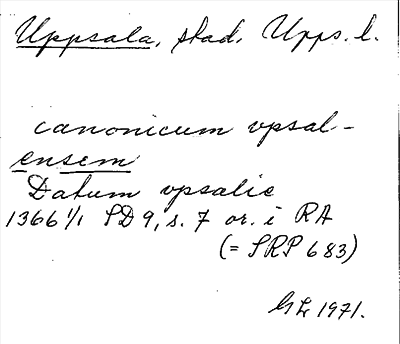 Uppsala, stad, Upps. l.
canonicum vpsal-
ensem
Datum vpsalie
1366 1/1 SD 9, s. 7 or. i RA
(= SRP 683)
GL 1971.